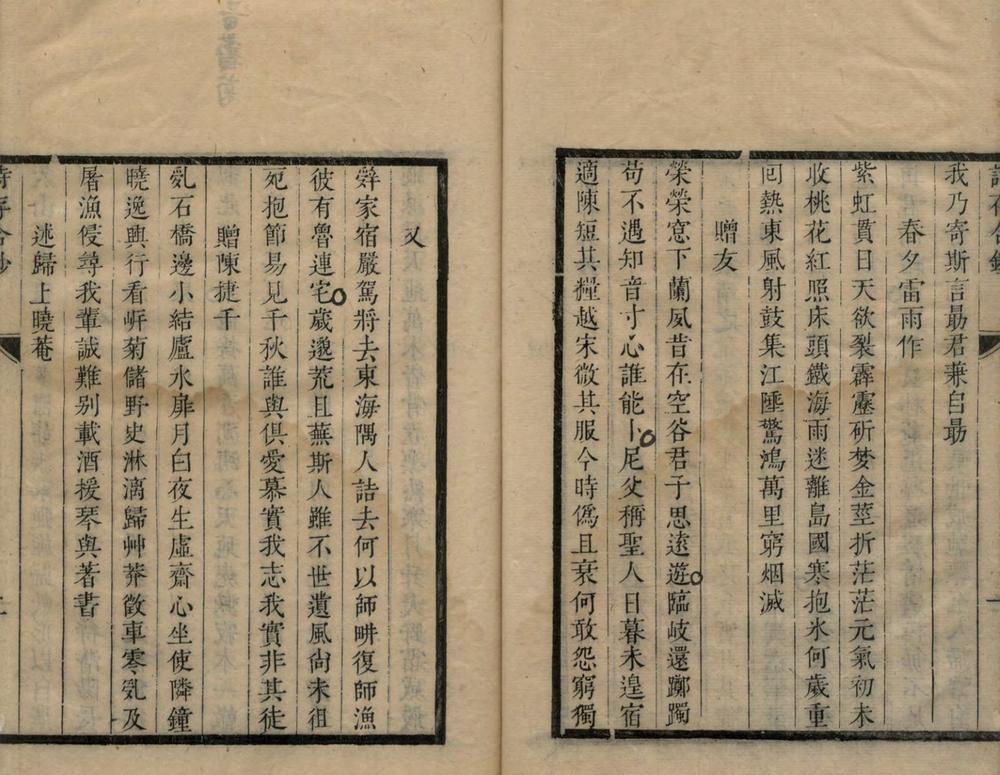 我乃寄斯言勗君兼自勗
春夕雷雨作
紫虹貫日天欲裂霹靂斫梦金莖折茫茫元氣初未
收桃花紅照床頭鐵海雨迷離島國寒抱氷何歲重
囘熱東風射鼓集江匯驚鴻萬里窮烟滅
贈友
榮榮窓下蘭夙昔在空谷君子思遠遊臨岐還躑躅
苟不遇知音寸心誰能卜尼父稱聖人日暮未遑宿
適陳短其糧越宋微其服今時僞且衰何敢怨窮獨
又
辤家宿嚴駕將去東海隅人詰去何以師畊復師漁
彼有魯連宅歲邈荒且蕪斯人雖不世遺風尙未徂
矢抱節易見千秋誰與俱愛慕實我志我實非其徒
贈陳捷千
亂石橋邊小結廬氷扉月白夜生虛齋心坐使隣鐘
曉逸興行看岍菊儲野史淋漓歸艸莽徵車零亂及
屠漁侵尋我輩誠難别載酒援琴與著書
述歸上曉菴